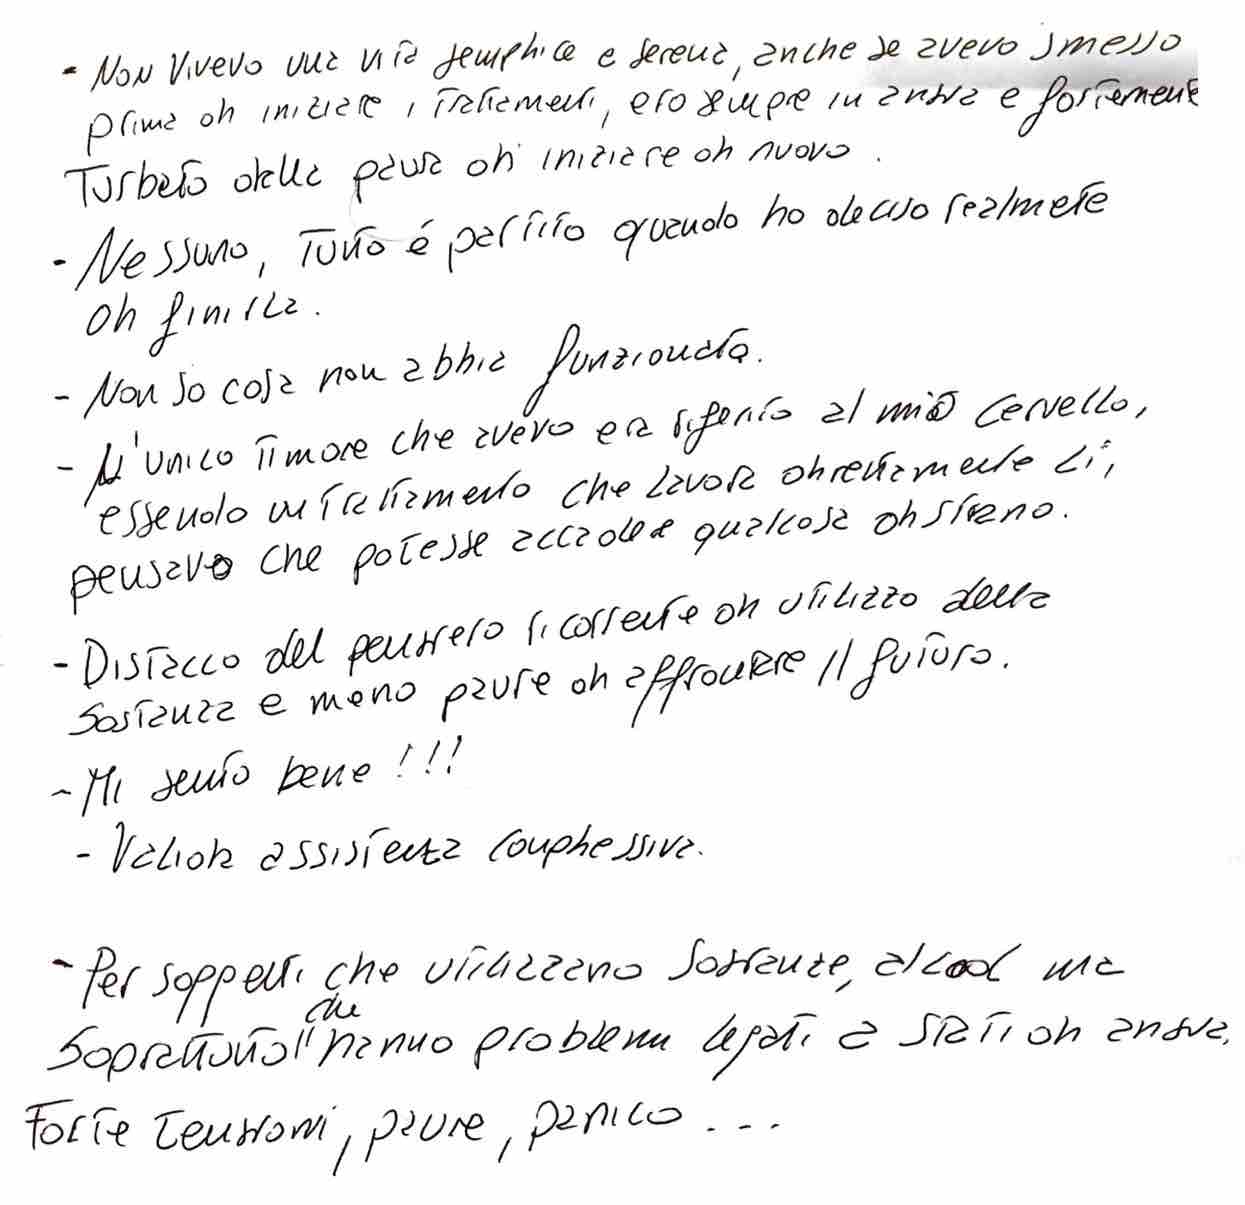 - Non vivevo una vita semplice e serena, anche se avevo smesso
prima di iniziare i trattamenti, ero sempre in ansia e fortemente
turbato dalla paura di iniziare di nuovo.
- Nessuno, tutto é partito quando ho deciso realmete
di finirla.
- Non so cosa non abbia funzionato.
- L'unico timore che avevo era riferito al mio cervello,
essendo un trattamento che lavora direttamente lì,
pensavo che potesse accadere qualcosa di strano.
- Distacco del pensiero ricorrente di utilizzo della
sostanza e meno paure di affrontare il futuro.
- Mi sento bene!!!
- Valida assistenza complessiva.
- Per soggetti che utilizzano sostanze, alcool ma
soprattutto che hanno problemi legati a stati di ansia,
forte tensioni, paure, panico...